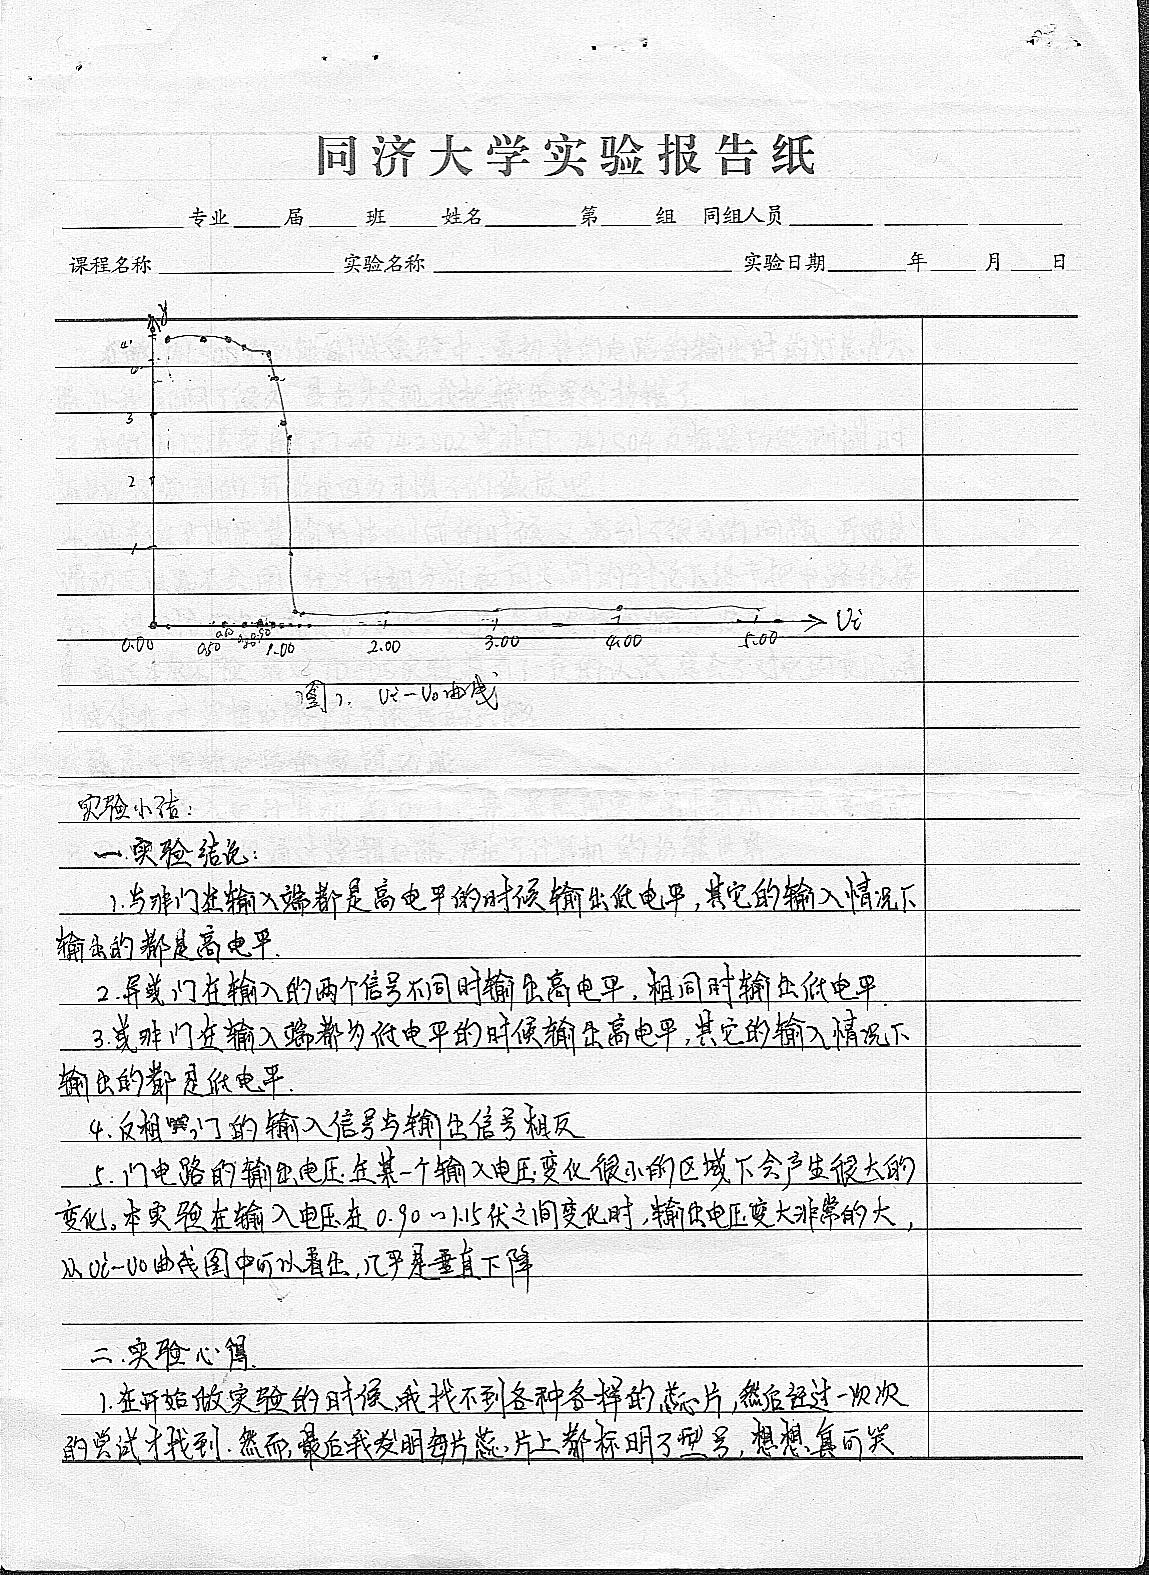 同济大学实验报告纸
专业 届 班 姓名 第 组 同组人员
课程名称 实验名称 实验日期 年 月 日
4
3
2
1
0.00 0.50 1.00 2.00 3.00 4.00 5.00 Ui
图1. Ui-Uo曲线
实验小结:
一.实验结论:
1.与非门在输入端都是高电平的时候输出低电平,其它的输入情况下
输出的都是高电平.
2.异或门在输入的两个信号不同时输出高电平,相同时输出低电平.
3.或非门在输入端都为低电平的时候输出高电平,其它的输入情况下
输出的都是低电平.
4.反相门的输入信号与输出信号相反
5.门电路的输出电压在某一个输入电压变化很小的区域下会产生很大的
变化。本实验在输入电压在0.90~1.15伏之间变化时,输出电压变大非常的大,
从Ui-Uo曲线图中可以看出,几乎是垂直下降
二.实验心得.
1.在开始做实验的时候,我找不到各种各样的芯片,然后经过一次次
的尝试才找到.然而,最后我发明每片芯片上都标明了型号,想想真可笑